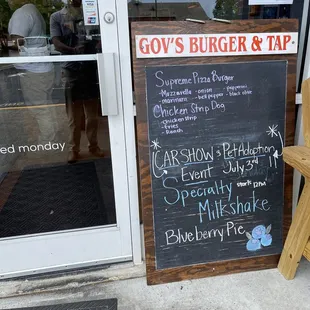 GOV'S BURGER & TAP
Supreme Pizza Burger
- Mozzarella - onion - pepperoni
- marinara - bell pepper - black olive
Chicken Strip Dog
- chicken strip
- fries
- Ranch
CAR SHOW & Pet Adoption
Event July 3rd
Specialty starts 12PM
Milkshake
Blueberry Pie
ed monday